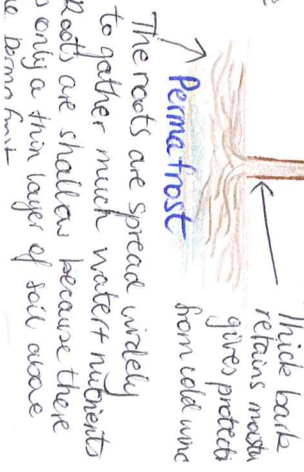 Thick bark
retains
gives
from cold
Permafrost
The roots are spread widely
to gather much water + nutrients
Roots are shallow because there
only a thin layer of soil above